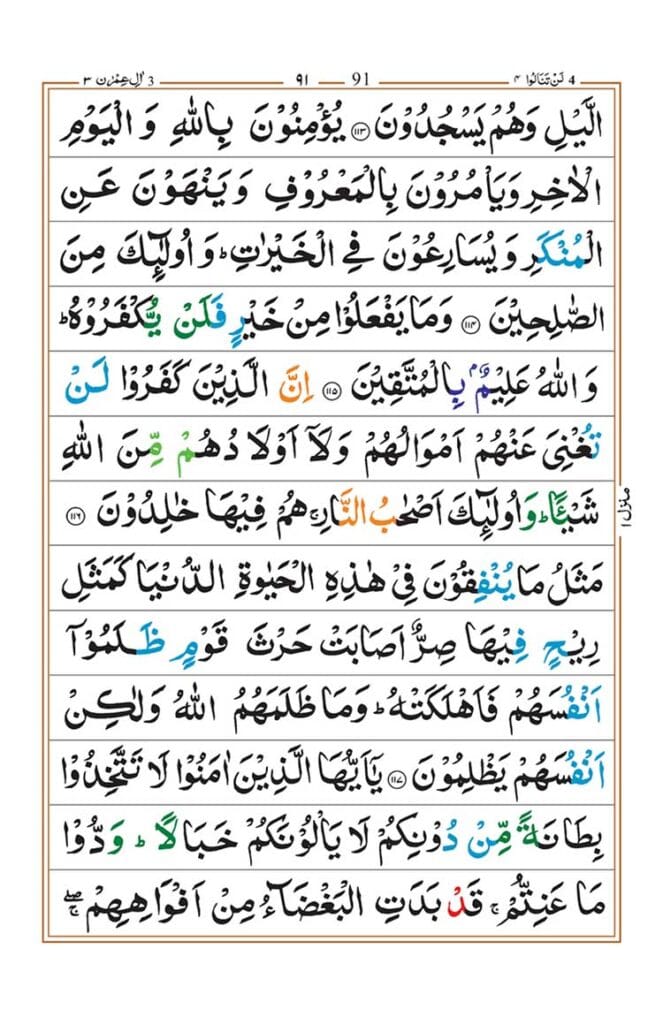 4 لَنْ تَنَالُوا ٤ 91 ٩١ 3 اٰلِ عِمْرٰن ٣
الَّيْلِ وَهُمْ يَسْجُدُوْنَ ﴿١١٣﴾ يُؤْمِنُوْنَ بِاللّٰهِ وَ الْيَوْمِ
الْاٰخِرِ وَيَاْمُرُوْنَ بِالْمَعْرُوْفِ وَيَنْهَوْنَ عَنِ
الْمُنْكَرِ وَيُسَارِعُوْنَ فِي الْخَيْرٰتِ ؕ وَ اُولٰٓئِكَ مِنَ
الصّٰلِحِيْنَ ﴿١١٤﴾ وَمَا يَفْعَلُوْا مِنْ خَيْرٍ فَلَنْ يُّكْفَرُوْهُ ؕ
وَ اللّٰهُ عَلِيْمٌۢ بِالْمُتَّقِيْنَ ﴿١١٥﴾ اِنَّ الَّذِيْنَ كَفَرُوْا لَنْ
تُغْنِيَ عَنْهُمْ اَمْوَالُهُمْ وَلَاۤ اَوْلَادُهُمْ مِّنَ اللّٰهِ
شَيْئًا ؕ وَاُولٰٓئِكَ اَصْحٰبُ النَّارِ ۚ هُمْ فِيْهَا خٰلِدُوْنَ ﴿١١٦﴾
مَثَلُ مَا يُنْفِقُوْنَ فِيْ هٰذِهِ الْحَيٰوةِ الدُّنْيَا كَمَثَلِ
رِيْحٍ فِيْهَا صِرٌّ اَصَابَتْ حَرْثَ قَوْمٍ ظَلَمُوْۤا
اَنْفُسَهُمْ فَاَهْلَكَتْهُ ؕ وَمَا ظَلَمَهُمُ اللّٰهُ وَلٰكِنْ
اَنْفُسَهُمْ يَظْلِمُوْنَ ﴿١١٧﴾ يٰۤاَيُّهَا الَّذِيْنَ اٰمَنُوْا لَا تَتَّخِذُوْا
بِطَانَةً مِّنْ دُوْنِكُمْ لَا يَاْلُوْنَكُمْ خَبَالًا ؕ وَدُّوْا
مَا عَنِتُّمْ ۚ قَدْ بَدَتِ الْبَغْضَآءُ مِنْ اَفْوَاهِهِمْ ۖۚ
منزل ١